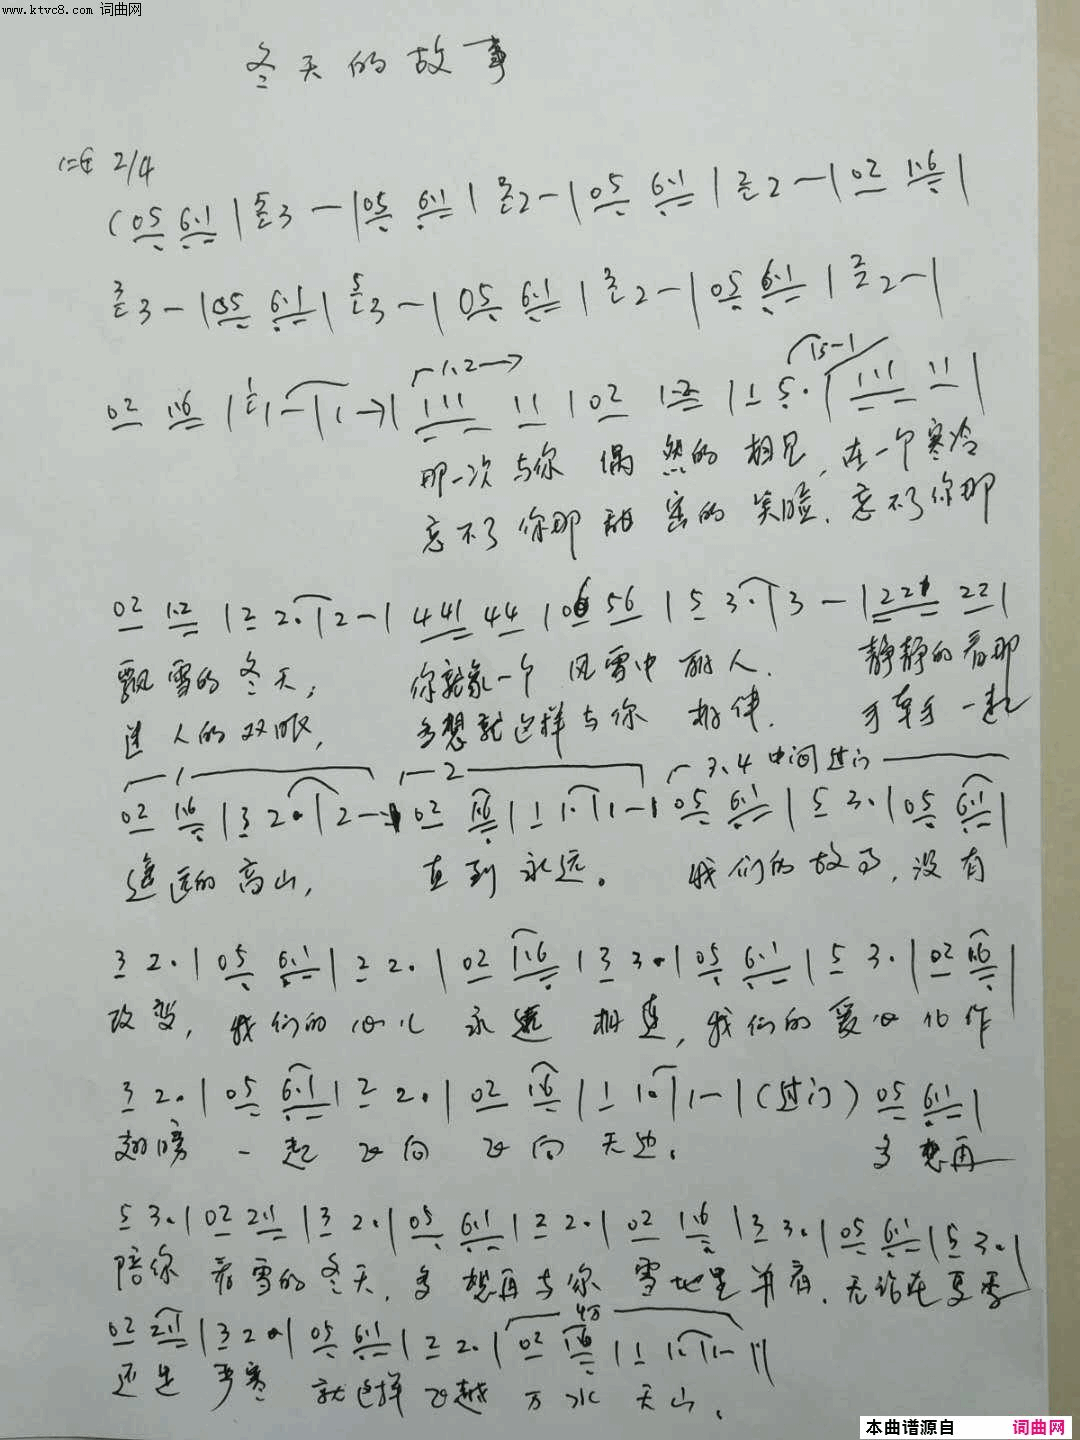 www.ktvc8.com 词曲网
冬天的故事
2/4
(05 6·1 | 3 — | 05 6·1 | 2 — | 05 6·1 | 2 — | 02 1·6 |
3 — | 05 6·1 | 3 — | 05 6·1 | 2 — | 05 6·1 | 2 — |
1.2
15-1
02 1·6 | 1 — | 1 — | 111 11 | 02 1·2 | 1 5· | 111 11 |
那一次与你 偶然的相见,在一个寒冷
忘不了你那甜蜜的笑脸,忘不了你那
02 1·2 | 2 2· | 2 — | 441 44 | 56 | 5 3· | 3 — | 221 22 |
飘雪的冬天; 你就象一个风雪中丽人. 静静的看那
迷人的双眼, 多想就这样与你相伴. 手牵手一起
1 2 3.4中间过门
02 1·6 | 3 2· | 2 — 02 1·6 | 1 1· | 1 — | 05 6·1 | 5 3· | 05 6·1 |
遥远的高山, 直到永远。 我们的故事,没有
3 2· | 05 6·1 | 2 2· | 02 1·6 | 3 3· | 05 6·1 | 5 3· | 02 1·6 |
改变,我们的心儿永远相连,我们的爱心化作
3 2· | 05 6·1 | 2 2· | 02 1·6 | 1 1· | 1 — | (过门) 05 6·1 |
翅膀一起飞向飞向天边。 多想再
5 3· | 02 2·1 | 3 2· | 05 6·1 | 2 2· | 02 1·6 | 3 3· | 05 6·1 | 5 3· |
陪你看雪的冬天,多想再与你雪地里并肩.无论在夏季
02 2·1 | 3 2· | 05 6·1 | 2 2· | 02 1·6 | 1 1· | 1 — ||
还是严寒 就这样飞越万水千山.
本曲谱源自 词曲网